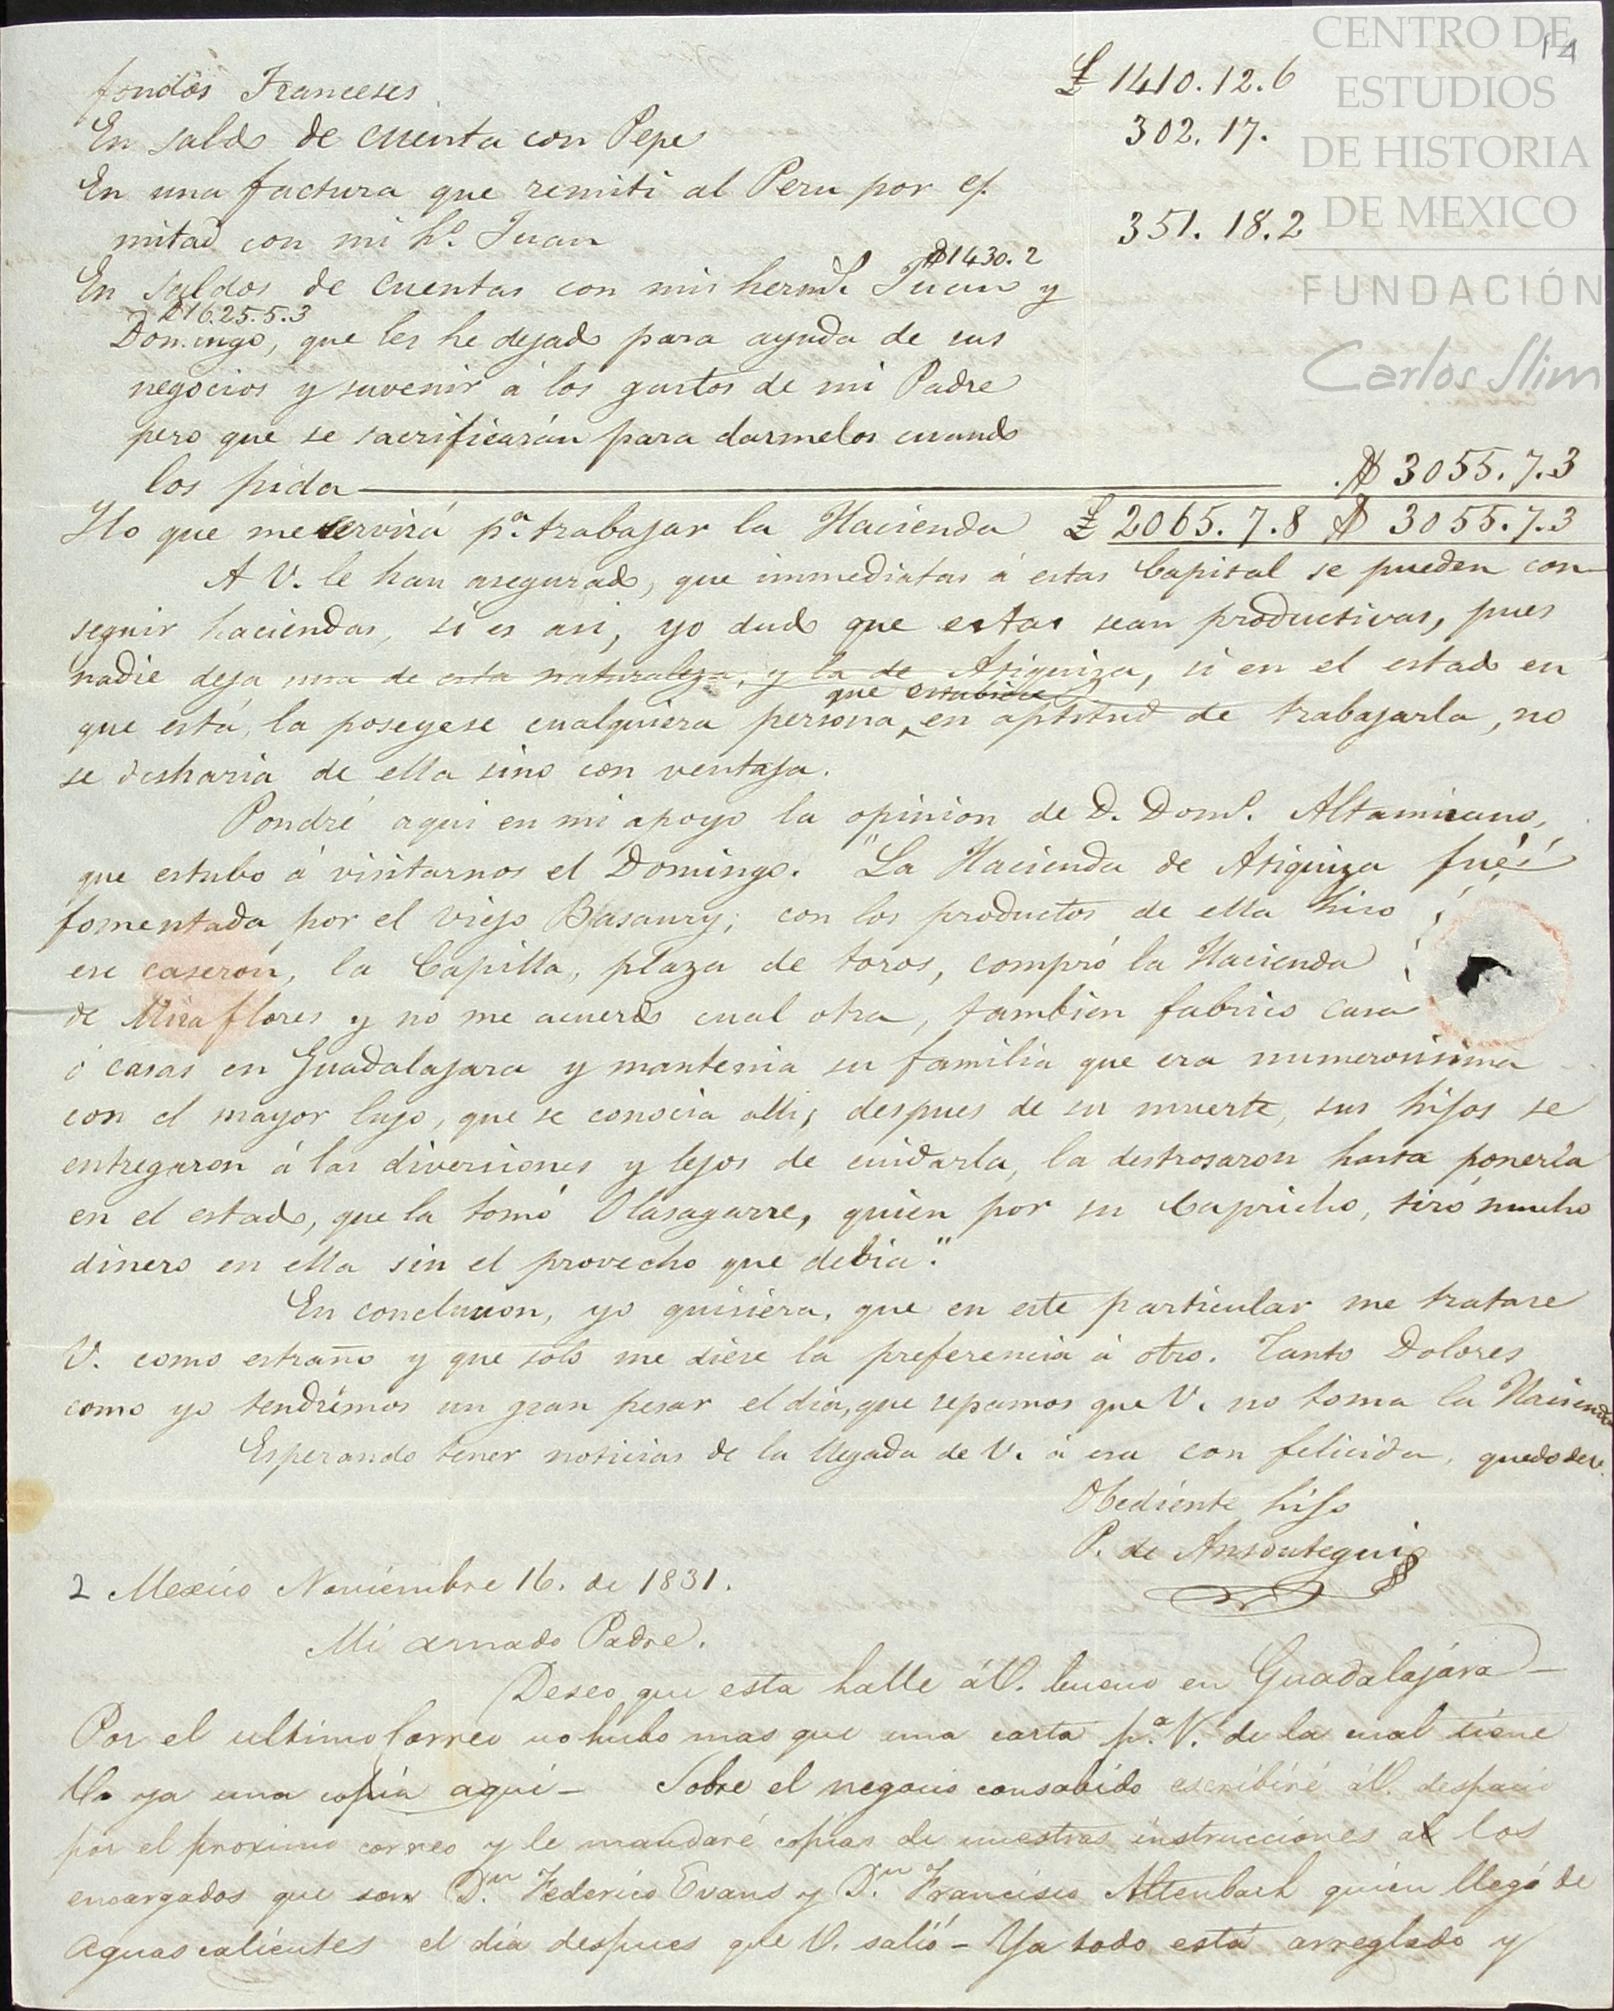 CENTRO DE
ESTUDIOS
DE HISTORIA
DE MEXICO
FUNDACIÓN
Carlos Slim
14
fondos Franceses £ 1410.12.6
En saldo de cuenta con Pepe 302.17.
En una factura que remiti al Peru por
mitad con mi ho. Juan 351.18.2
$1430.2
En saldos de cuentas con mis herms. Juan y
$1625.5.3
Domingo, que les he dejado para ayuda de sus
negocios y suvenir á los gastos de mi Padre
pero que se sacrificarán para darmelos cuando
los pida $ 3055.7.3
Ylo que me servirá pa. trabajar la Hacienda £ 2065.7.8 $ 3055.7.3
A V. le han asegurado, que immediatas á estas Capital se pueden con-
seguir haciendas, si es asi, yo dudo que estas sean productivas, pues
nadie deja una de esta naturaleza, y la de Atiquiza, si en el estado en
que estubiese
que está, la poseyese cualquiera persona, en aptitud de trabajarla, no
se desharia de ella sino con ventaja.
Pondré aqui en mi apoyo la opinion de D. Domo. Altamirano,
que estubo á visitarnos el Domingo. "La Hacienda de Atiquiza fué
fomentada por el viejo Basaury; con los productos de ella hiso
ese caseron, la Capilla, plaza de toros, compró la Hacienda
de Miraflores y no me acuerdo cual otra, tambien fabrico casa
ó casas en Guadalajara y mantenia su familia que era numerosisima
con el mayor lujo, que se conocia alli; despues de su muerte, sus hijos se
entregaron á las diversiones y lejos de cuidarla, la destrosaron hasta ponerla
en el estado, que la tomó Olasagarre, quien por su Capricho, tiró mucho
dinero en ella sin el provecho que debia".
En conclusion, yo quisiera, que en este particular me tratase
V. como estraño y que solo me diese la preferencia á otro. Tanto Dolores
como yo tendrémos un gran pesar el dia, que sepamos que V. no toma la Hacienda
Esperando tener noticias de la llegada de V. á esa con felicida, quedo de V.
Obediente hijo
P. de Ansoategui
2 Mexico Noviembre 16. de 1831.
Mi amado Padre.
Deseo que esta halle áV. bueno en Guadalajára-
Por el ultimo Correo no hubo mas que una carta pa. V. de la cual tiene
V. ya una copia aquí- Sobre el negocio consabido escribiré áV. despacio
por el proximo correo y le mandaré copias de nuestras instrucciones a los
encargados que son Dn. Federico Evans y Dn. Francisco Altenbach quien llegó de
Aguascalientes el día despues que V. salió- Ya todo está arreglado y